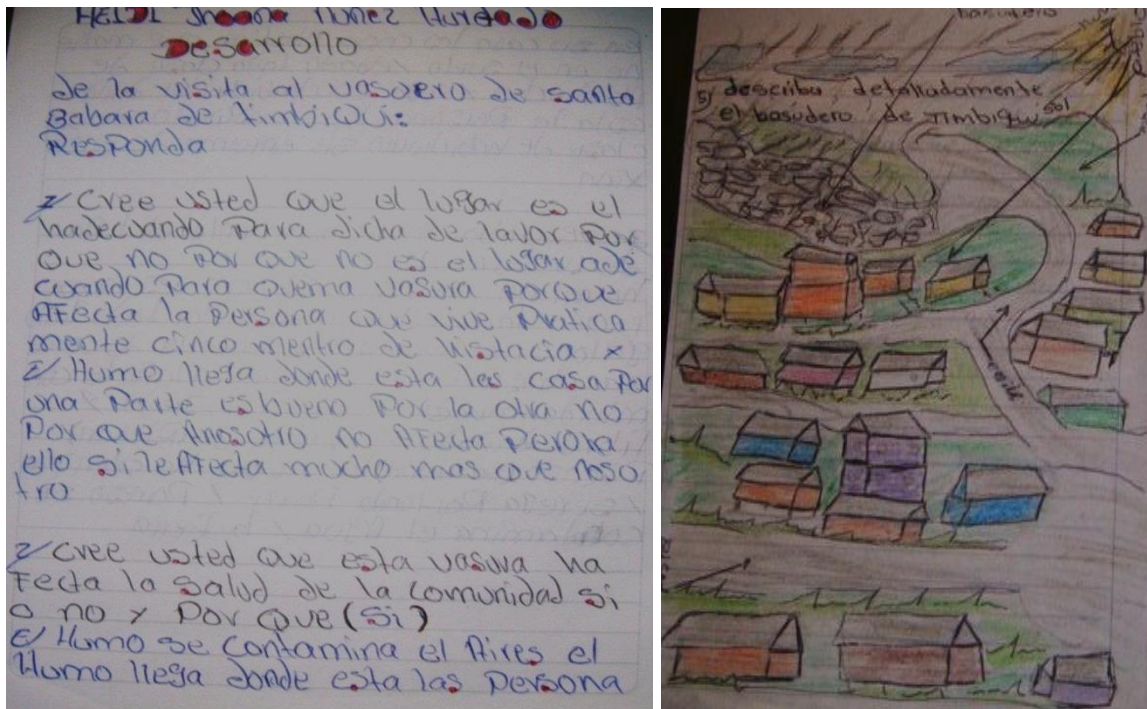 HEIDI Jhoana Nuñez Hurtado
Desarrollo
de la visita al vasuero de santa
Babara de timbiqui:
Responda
1/ Cree usted que el lugar es el
hadecuando Para dicha de lavor Por
que no Por que no es el lugar ade
cuando Para quema vasura Porque
AFecta la Persona que vive Pratica
mente cinco mentro de distacia x
El Humo llega donde esta las casa Por
una Parte es bueno Por la otra no
Por que Anosotro no AFecta Peroha
ello si le AFecta mucho mas que noso
tro
2/ Cree usted que esta vasura ha
Fecta la salud de la comunidad si
o no y Por que (si)
El Humo se contamina el Aires el
Humo llega donde esta las Persona
basudero
5/ describa detalladamente
el basudero de Timbiqui
sol
calle